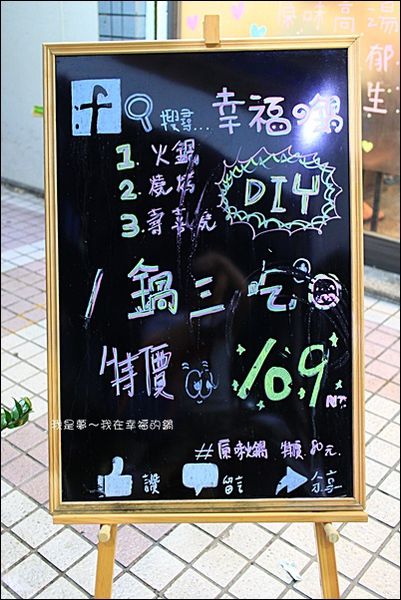 原味高湯
郁
生
f 搜尋... 幸福の鍋
1. 火鍋
2. 燒烤
3. 壽喜燒
DIY
1鍋三吃
特價 109
NT
我是夢~我在幸福的鍋
#原味火鍋 特價:80元.
讚 留言 分享